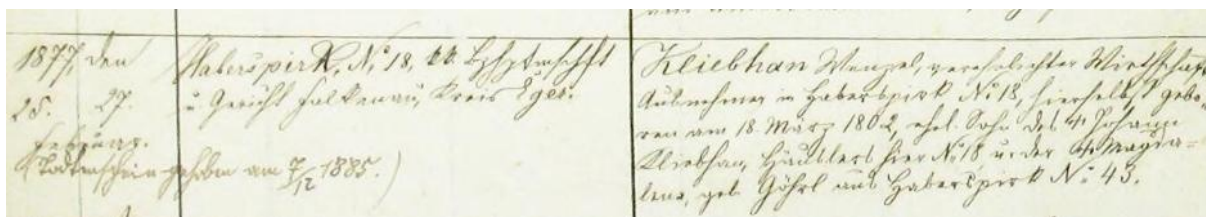 1877, den
25. 27.
Februar.
(Todtenschein gehoben am 7/12 1885.)
Haberspirk, No 18, kk. Bzhptmschft
u. Gericht Falkenau, Kreis Eger.
Kliebhan Wenzel, verehelichter Wirthschafts-
Ausnehmer in Haberspirk No 18, hierselbst gebo-
ren am 18. März 1802, ehel. Sohn des † Johann
Kliebhan, Häuslers hier No 18 u. der † Magda-
lena, geb. Göhrl aus Haberspirk No 43.